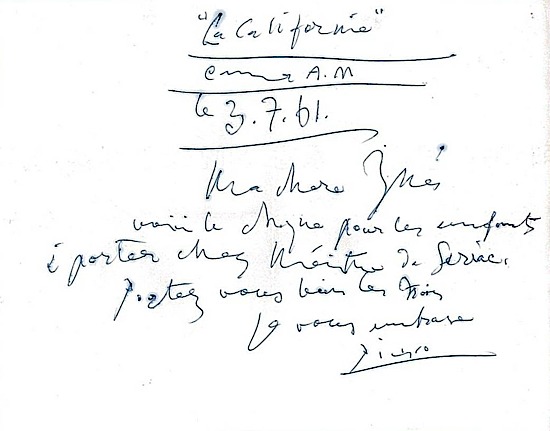 "La Californie"
Cannes A.M
le 3.7.61.
Ma chere Inés
voici le cheque pour les enfants
à porter chez Maitre de Seriac.
Portez vous bien les trois
Je vous embrase
Picasso